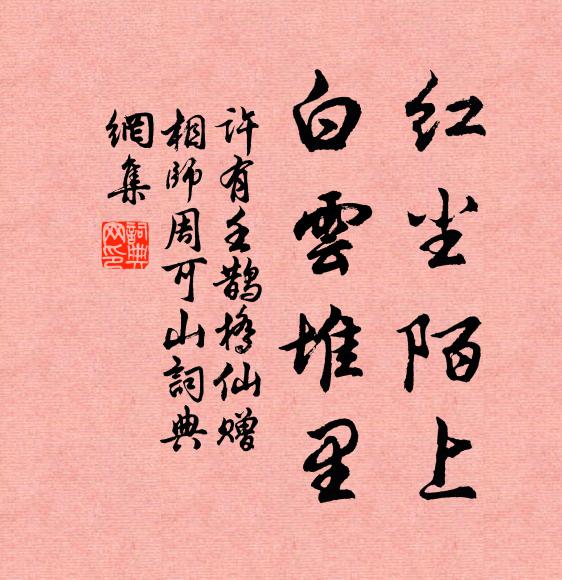 红尘陌上
白雲堆里
许有壬鹊桥仙赠
相师周可山詞典
網集
詞典
网印